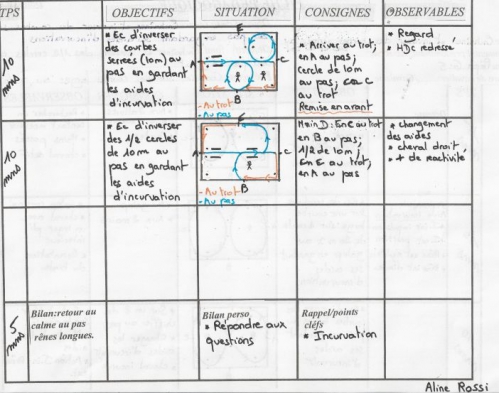 TPS
OBJECTIFS
SITUATION
CONSIGNES
OBSERVABLES
10 mins
* Ec d'inverser
des courbes
serrées (10m) au
pas en gardant
les aides
d'incurvation
E
A
C
B
- Au trot
- Au pas
* Arriver au trot;
en A au pas;
cercle de 10m
au pas; en C
au trot
Remise en avant
* Regard
* HDC redressé
10 mins
* Ec d'inverser
des 1/2 cercles
de 10m au
pas en gardant
les aides
d'incurvation
E
A
C
B
- Au trot
- Au pas
Main D: En C au trot
en B au pas;
1/2 de 10m;
En E au trot;
en A au pas
* changement
des aides
* cheval droit
* + de réactivité
5 mins
Bilan:retour au
calme au pas
rênes longues.
Bilan perso
* Répondre aux
questions
Rappel/points
cléfs
* Incurvation
Aline Rossi